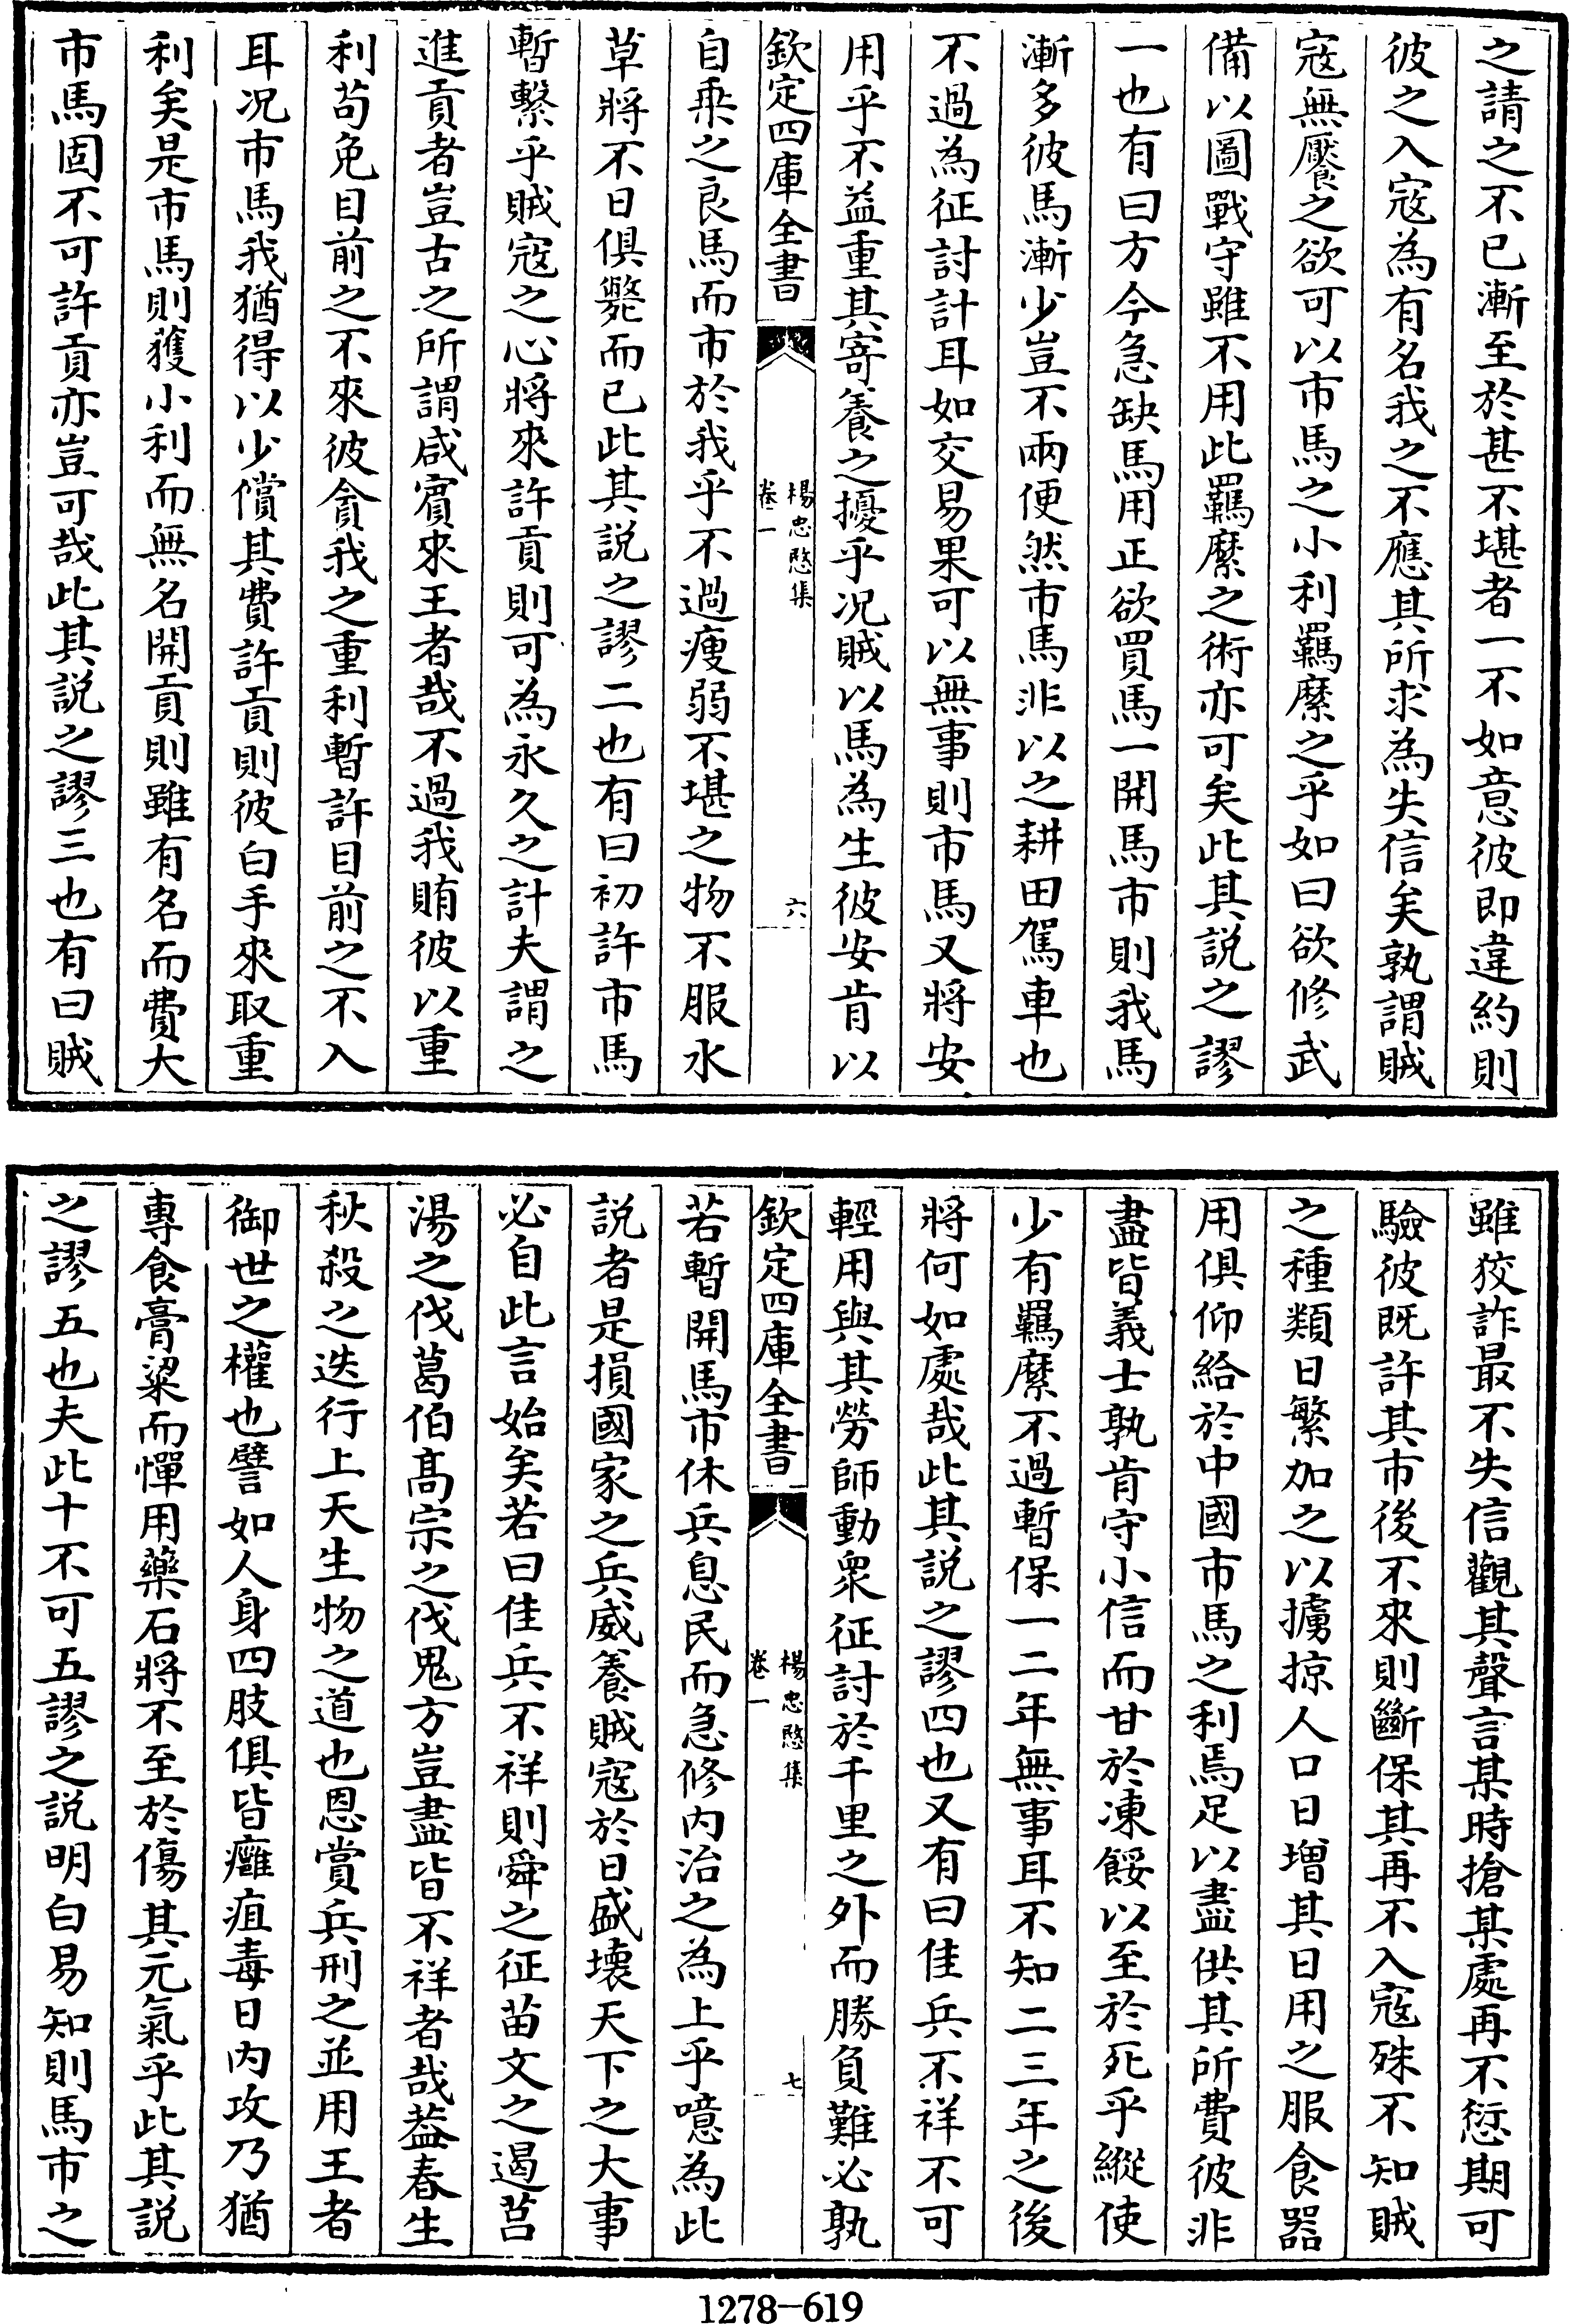 之請之不已漸至於甚不堪者一不如意彼即違約則
彼之入寇為有名我之不應其所求為失信矣孰謂賊
寇無饜之欲可以市馬之小利羈縻之乎如曰欲修武
備以圖戰守雖不用此羈縻之術亦可矣此其説之謬
一也有曰方今急缺馬用正欲買馬一開馬市則我馬
漸多彼馬漸少豈不兩便然市馬非以之耕田駕車也
不過為征討計耳如交易果可以無事則市馬又將安
用乎不益重其寄養之擾乎况賊以馬為生彼安肯以
欽定四庫全書
楊忠愍集
卷一
六
自乗之良馬而市於我乎不過瘦弱不堪之物不服水
草將不日俱斃而已此其説之謬二也有曰初許市馬
暫繫乎賊寇之心將來許貢則可為永久之計夫謂之
進貢者豈古之所謂咸賓來王者哉不過我賄彼以重
利苟免目前之不來彼貪我之重利暫許目前之不入
耳况市馬我猶得以少償其費許貢則彼白手來取重
利矣是市馬則獲小利而無名開貢則雖有名而費大
市馬固不可許貢亦豈可哉此其説之謬三也有曰賊
雖狡詐最不失信觀其聲言某時搶某處再不愆期可
驗彼既許其市後不來則斷保其再不入寇殊不知賊
之種類日繁加之以擄掠人口日增其日用之服食器
用俱仰給於中國市馬之利焉足以盡供其所費彼非
盡皆義士孰肯守小信而甘於凍餒以至於死乎縱使
少有羈縻不過暫保一二年無事耳不知二三年之後
將何如處哉此其説之謬四也又有曰佳兵不祥不可
輕用與其勞師動衆征討於千里之外而勝負難必孰
欽定四庫全書
楊忠愍集
卷一
七
若暫開馬市休兵息民而急修内治之為上乎噫為此
説者是損國家之兵威養賊寇於日盛壊天下之大事
必自此言始矣若曰佳兵不祥則舜之征苗文之遏莒
湯之伐葛伯髙宗之伐鬼方豈盡皆不祥者哉葢春生
秋殺之迭行上天生物之道也恩賞兵刑之並用王者
御世之權也譬如人身四肢俱皆癰疽毒日内攻乃猶
專食膏粱而憚用藥石將不至於傷其元氣乎此其説
之謬五也夫此十不可五謬之説明白易知則馬市之
1278—619